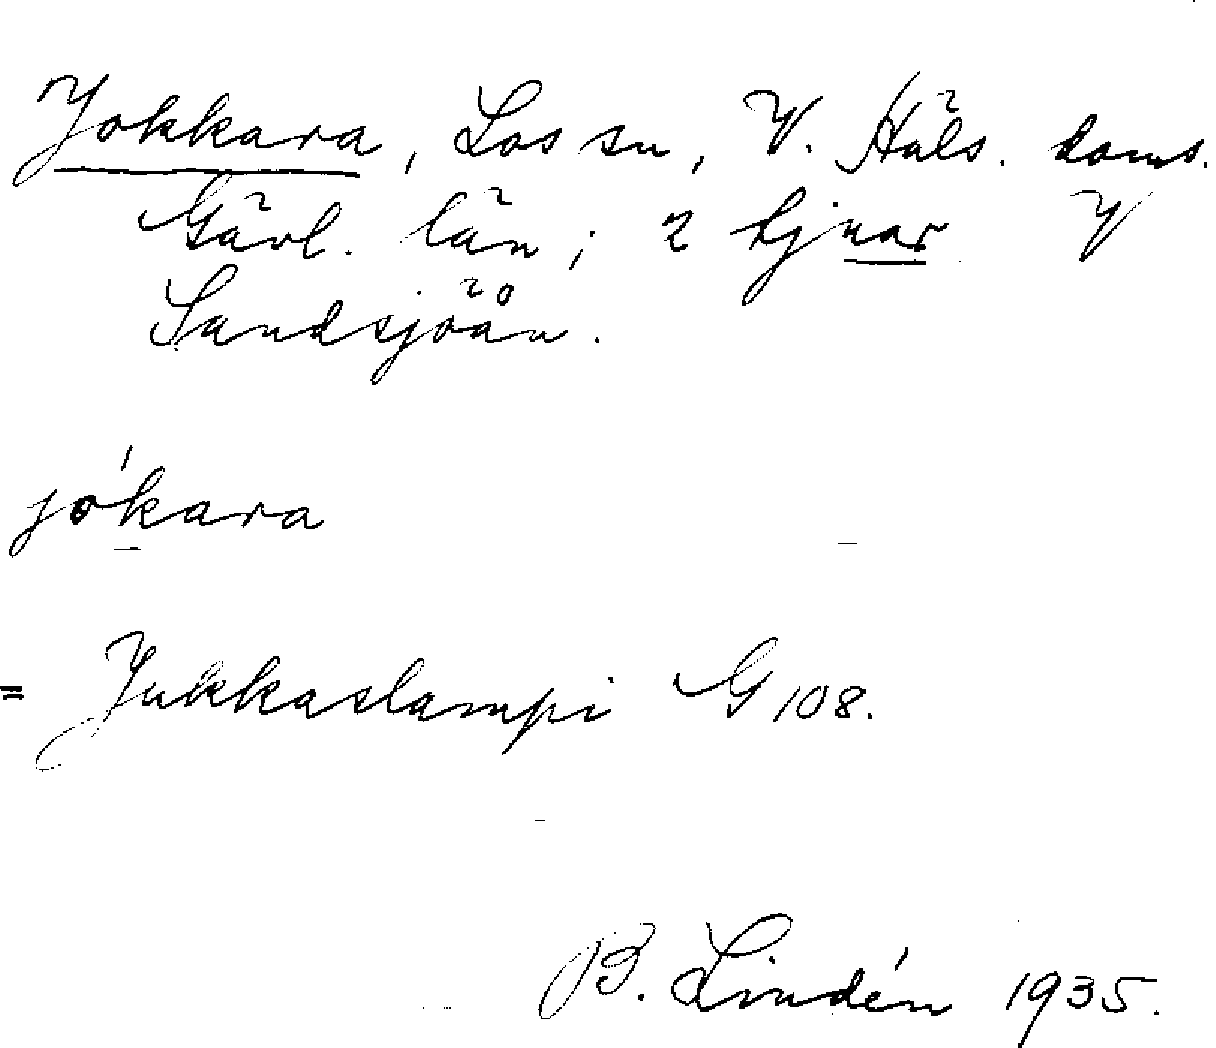 Jokkara, Los sn, V. Häls. doms.
Gävl. län; 2 tjnar V
Sandsjöån.
jókara
= Jukkaslampi G 108.
B. Lindén 1935.